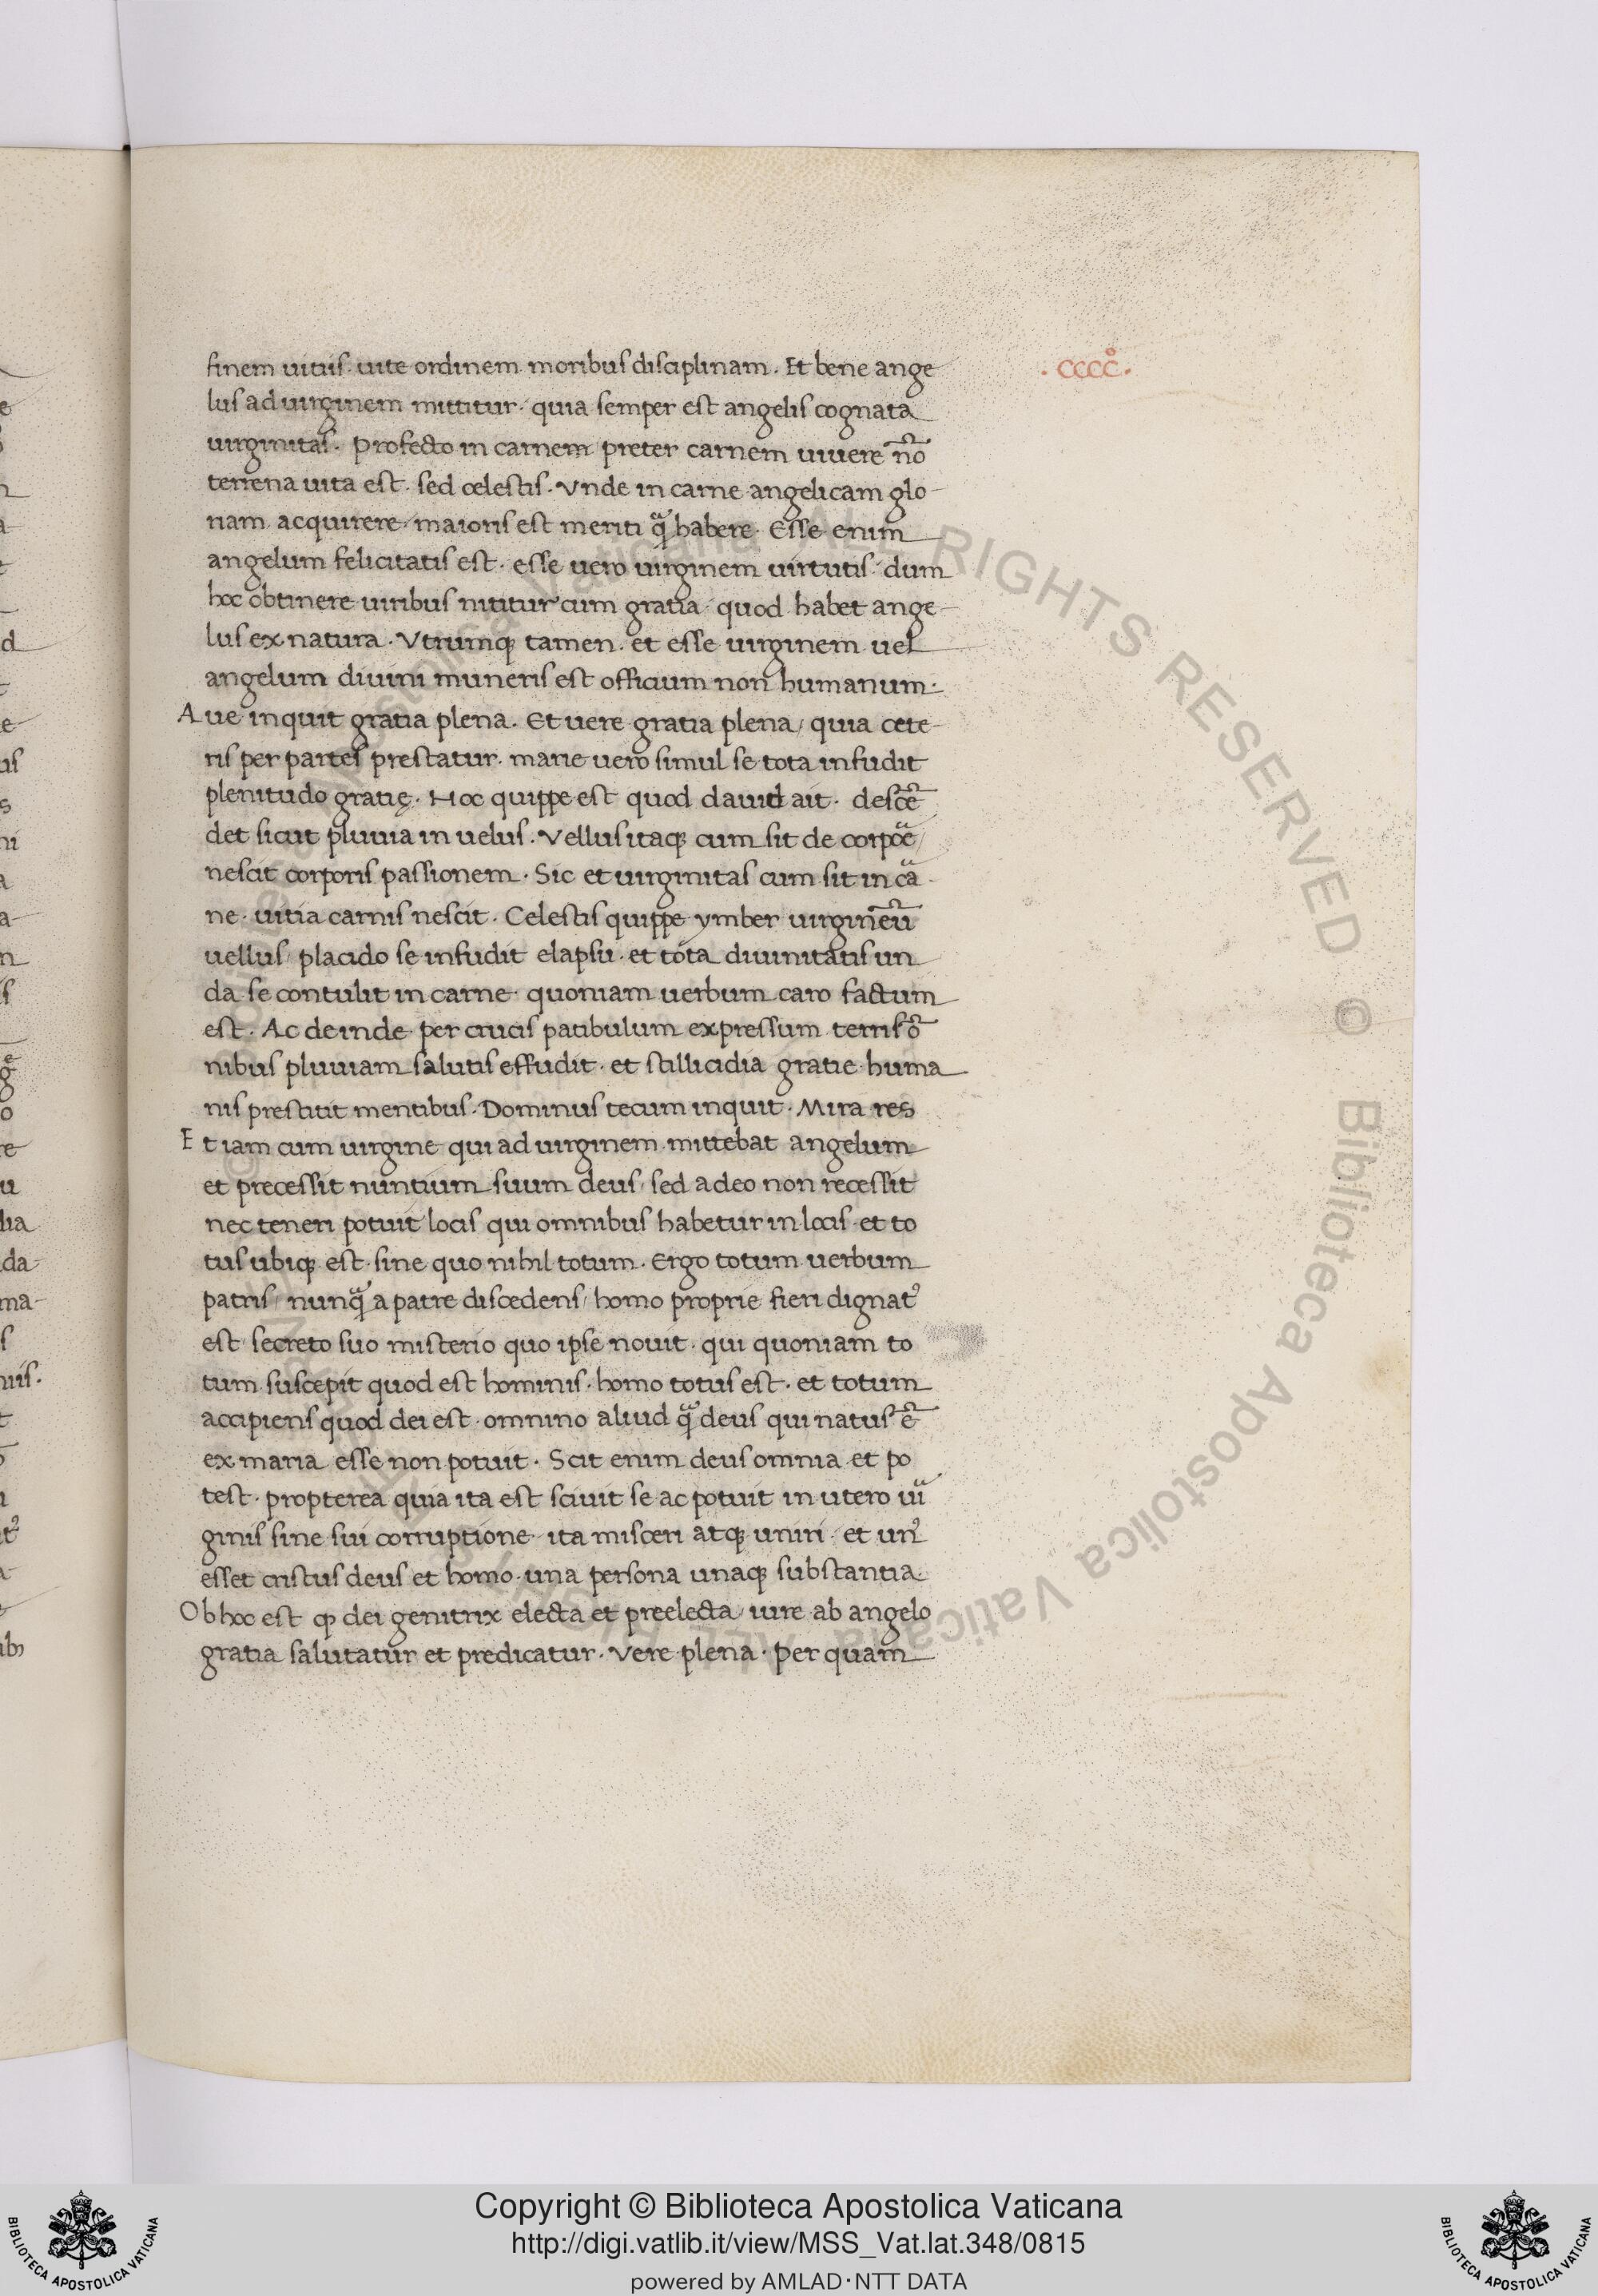 .cccc̊.
finem uitiis. uite ordinem moribus disciplinam. Et bene ange
lus ad uirginem mittitur. quia semper est angelis cognata
uirginitas. Profecto in carnem preter carnem uiuere nō
terrena uita est. sed celestis. Vnde in carne angelicam glo-
riam acquirere maioris est meriti q̄ habere. Esse enim
angelum felicitatis est. esse uero uirginem uirtutis. dum
hoc obtinere uiribus nititur cum gratia. quod habet ange-
lus ex natura. Vtrumq; tamen. et esse uirginem uel
angelum diuini muneris est officium non humanum.
Aue inquit gratia plena. Et uere gratia plena/ quia cete-
ris per partes prestatur. marie uero simul se tota infudit
plenitudo gratię. Hoc quippe est quod dauid ait. descē
det sicut pluuia in uelus. Vellus itaq; cum sit de corpoͣe/
nescit corporis passionem. Sic et uirginitas cum sit in cͣa
ne. uitia carnis nescit. Celestis quippe ymber uirgineū
uellus/ placido se infudit elapsu. et tota diuinitatis un
da se contulit in carne. quoniam uerbum caro factum
est. Ac deinde per crucis patibulum expressum terris ō
nibus pluuiam salutis effudit. et stillicidia gratie huma
nis prestitit mentibus. Dominus tecum inquit. Mira res
Et iam cum uirgine qui ad uirginem mittebat angelum
et precessit nuntium suum deus/ sed adeo non recessit
nec teneri potuit locis qui omnibus habetur in locis. et to
tus ubiq; est. sine quo nihil totum. Ergo totum uerbum
patris/ nunq̄ a patre discedens/ homo proprie fieri dignatꝰ
est secreto suo misterio quo ipse nouit. qui quoniam to
tum suscepit quod est hominis. homo totus est. et totum
accipiens quod dei est. omnino aliud q̄ deus qui natus ē
ex maria esse non potuit. Scit enim deus omnia et po
test. propterea quia ita est sciuit se ac potuit in utero uiͣ
ginis sine sui corruptione ita misceri atq; uniri. et unꝰ
esset cristus deus et homo. una persona unaq; substantia.
Ob hoc est q; dei genitrix electa et preelecta/ iure ab angelo
gratia salutatur et predicatur. Vere plena. Per quam
Copyright © Biblioteca Apostolica Vaticana
http://digi.vatlib.it/view/MSS_Vat.lat.348/0815
powered by AMLAD·NTT DATA
BIBLIOTECA APOSTOLICA VATICANA
BIBLIOTECA APOSTOLICA VATICANA